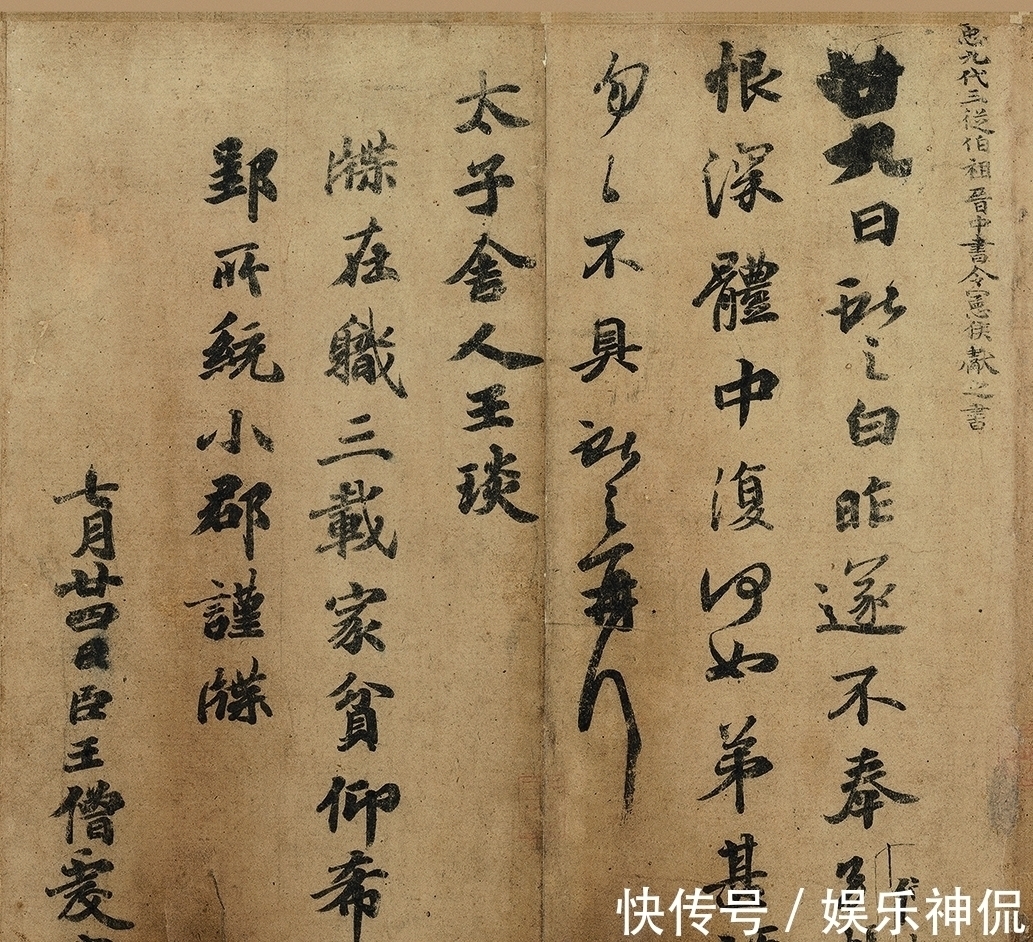 臣九代三從伯祖晉中書令憲侯獻之書
廿九日獻之白昨遂不奉
恨深體中復何如弟甚
勿〻不具獻之再拜
太子舍人王琰
牒在職三載家貧仰希
郢所統小郡謹牒
七月廿四日臣王僧虔
快传号 / 娱乐神侃